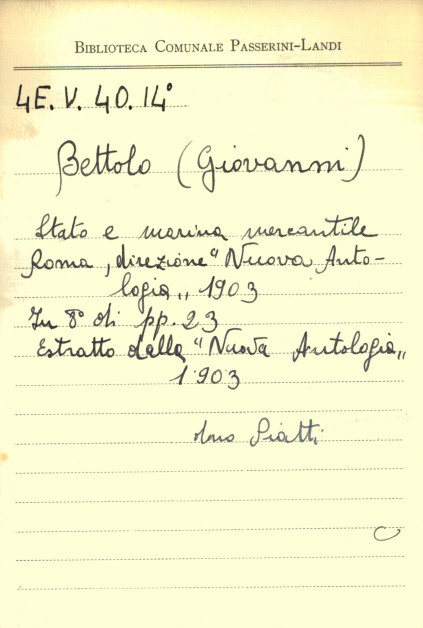 BIBLIOTECA COMUNALE PASSERINI-LANDI
4E. V. 40. 14°
Bettolo (Giovanni)
Stato e marina mercantile
Roma, direzione "Nuova Anto-
logia„ 1903
In 8° di pp. 23
Estratto dalla "Nuova Antologia„
1903
dono Piatti